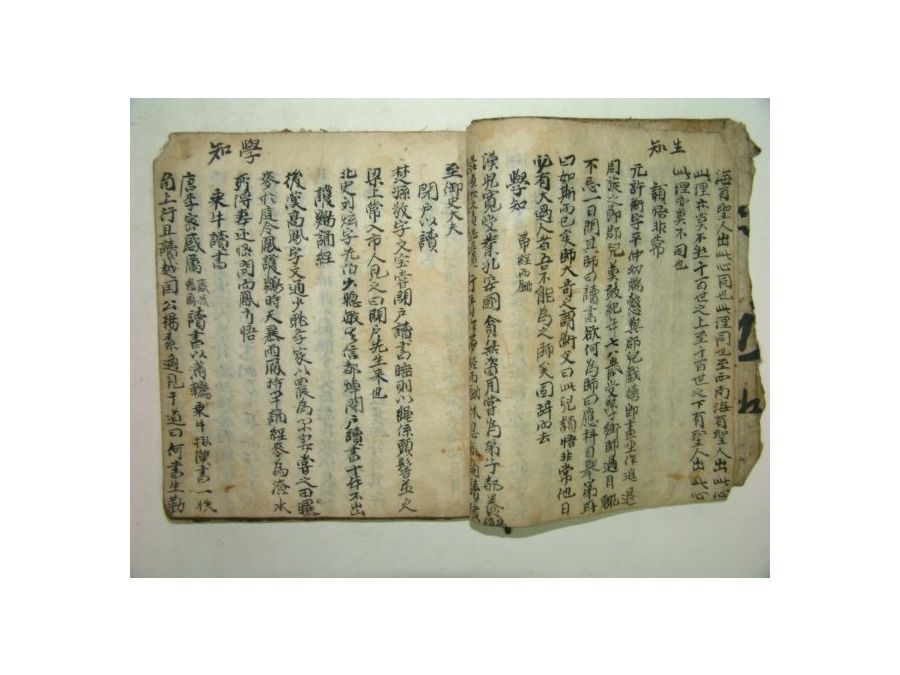 生知
海有聖人出此心同也此理同也至西南海有聖人出此心
此理亦莫不至千百世之上至千百世之下有聖人出此心
此理亦莫不同也
穎悟非常
元許衡字平仲幼與群兒戲嬉即畫坐作進退
周旋之節群兒莫敢犯年七八歲受學於師過目輒
不忘一日問其師曰讀書欲何為師曰應科目擧第耳
曰如斯而已矣師大奇之謂父曰此兒穎悟非常他日
必有大過人者吾不能為之師矣固辭而去
學知 帶經而鋤
漢兒寬受業孔安國貧無資用嘗為弟子都養
行 帶經而鋤休息 讀
至御史大夫
閉戶以讀
楚孫敬字文宝嘗閉戶讀書睡則以繩係頭髻並之
梁上常入市人見之曰閉戶先生来也
北史刘炫字光伯少聰敏与信都焯閉戶讀書十年不出
護鷄誦經
後漢高鳳字文通少耽学家以農為業妻嘗之田曝
麥於庭令鳳護鷄時天暴雨鳳持竿誦經麥為潦水
所漂妻还怪問而鳳方悟
學知
乘牛讀書
唐李密感厲讀書以蒲韉乘牛掛漢書一帙
角上行且讀越国公楊素適見于道曰何書生勤